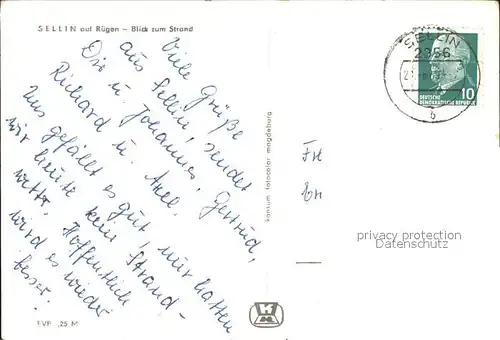 SELLIN auf Rügen – Blick zum Strand
Viele Grüße
aus Sellin, sendet
Dir u. Johannes, Gertrud,
Richard u. Axel.
Uns gefällt es gut, nur hatten
wir heute kein Strand-
wetter. Hoffentlich
wird es wieder
besser.
EVP ,25 M
konsum fotocolor magdeburg
SELLIN
2356
b
10
DEUTSCHE
DEMOKRATISCHE REPUBLIK
privacy protection
Datenschutz